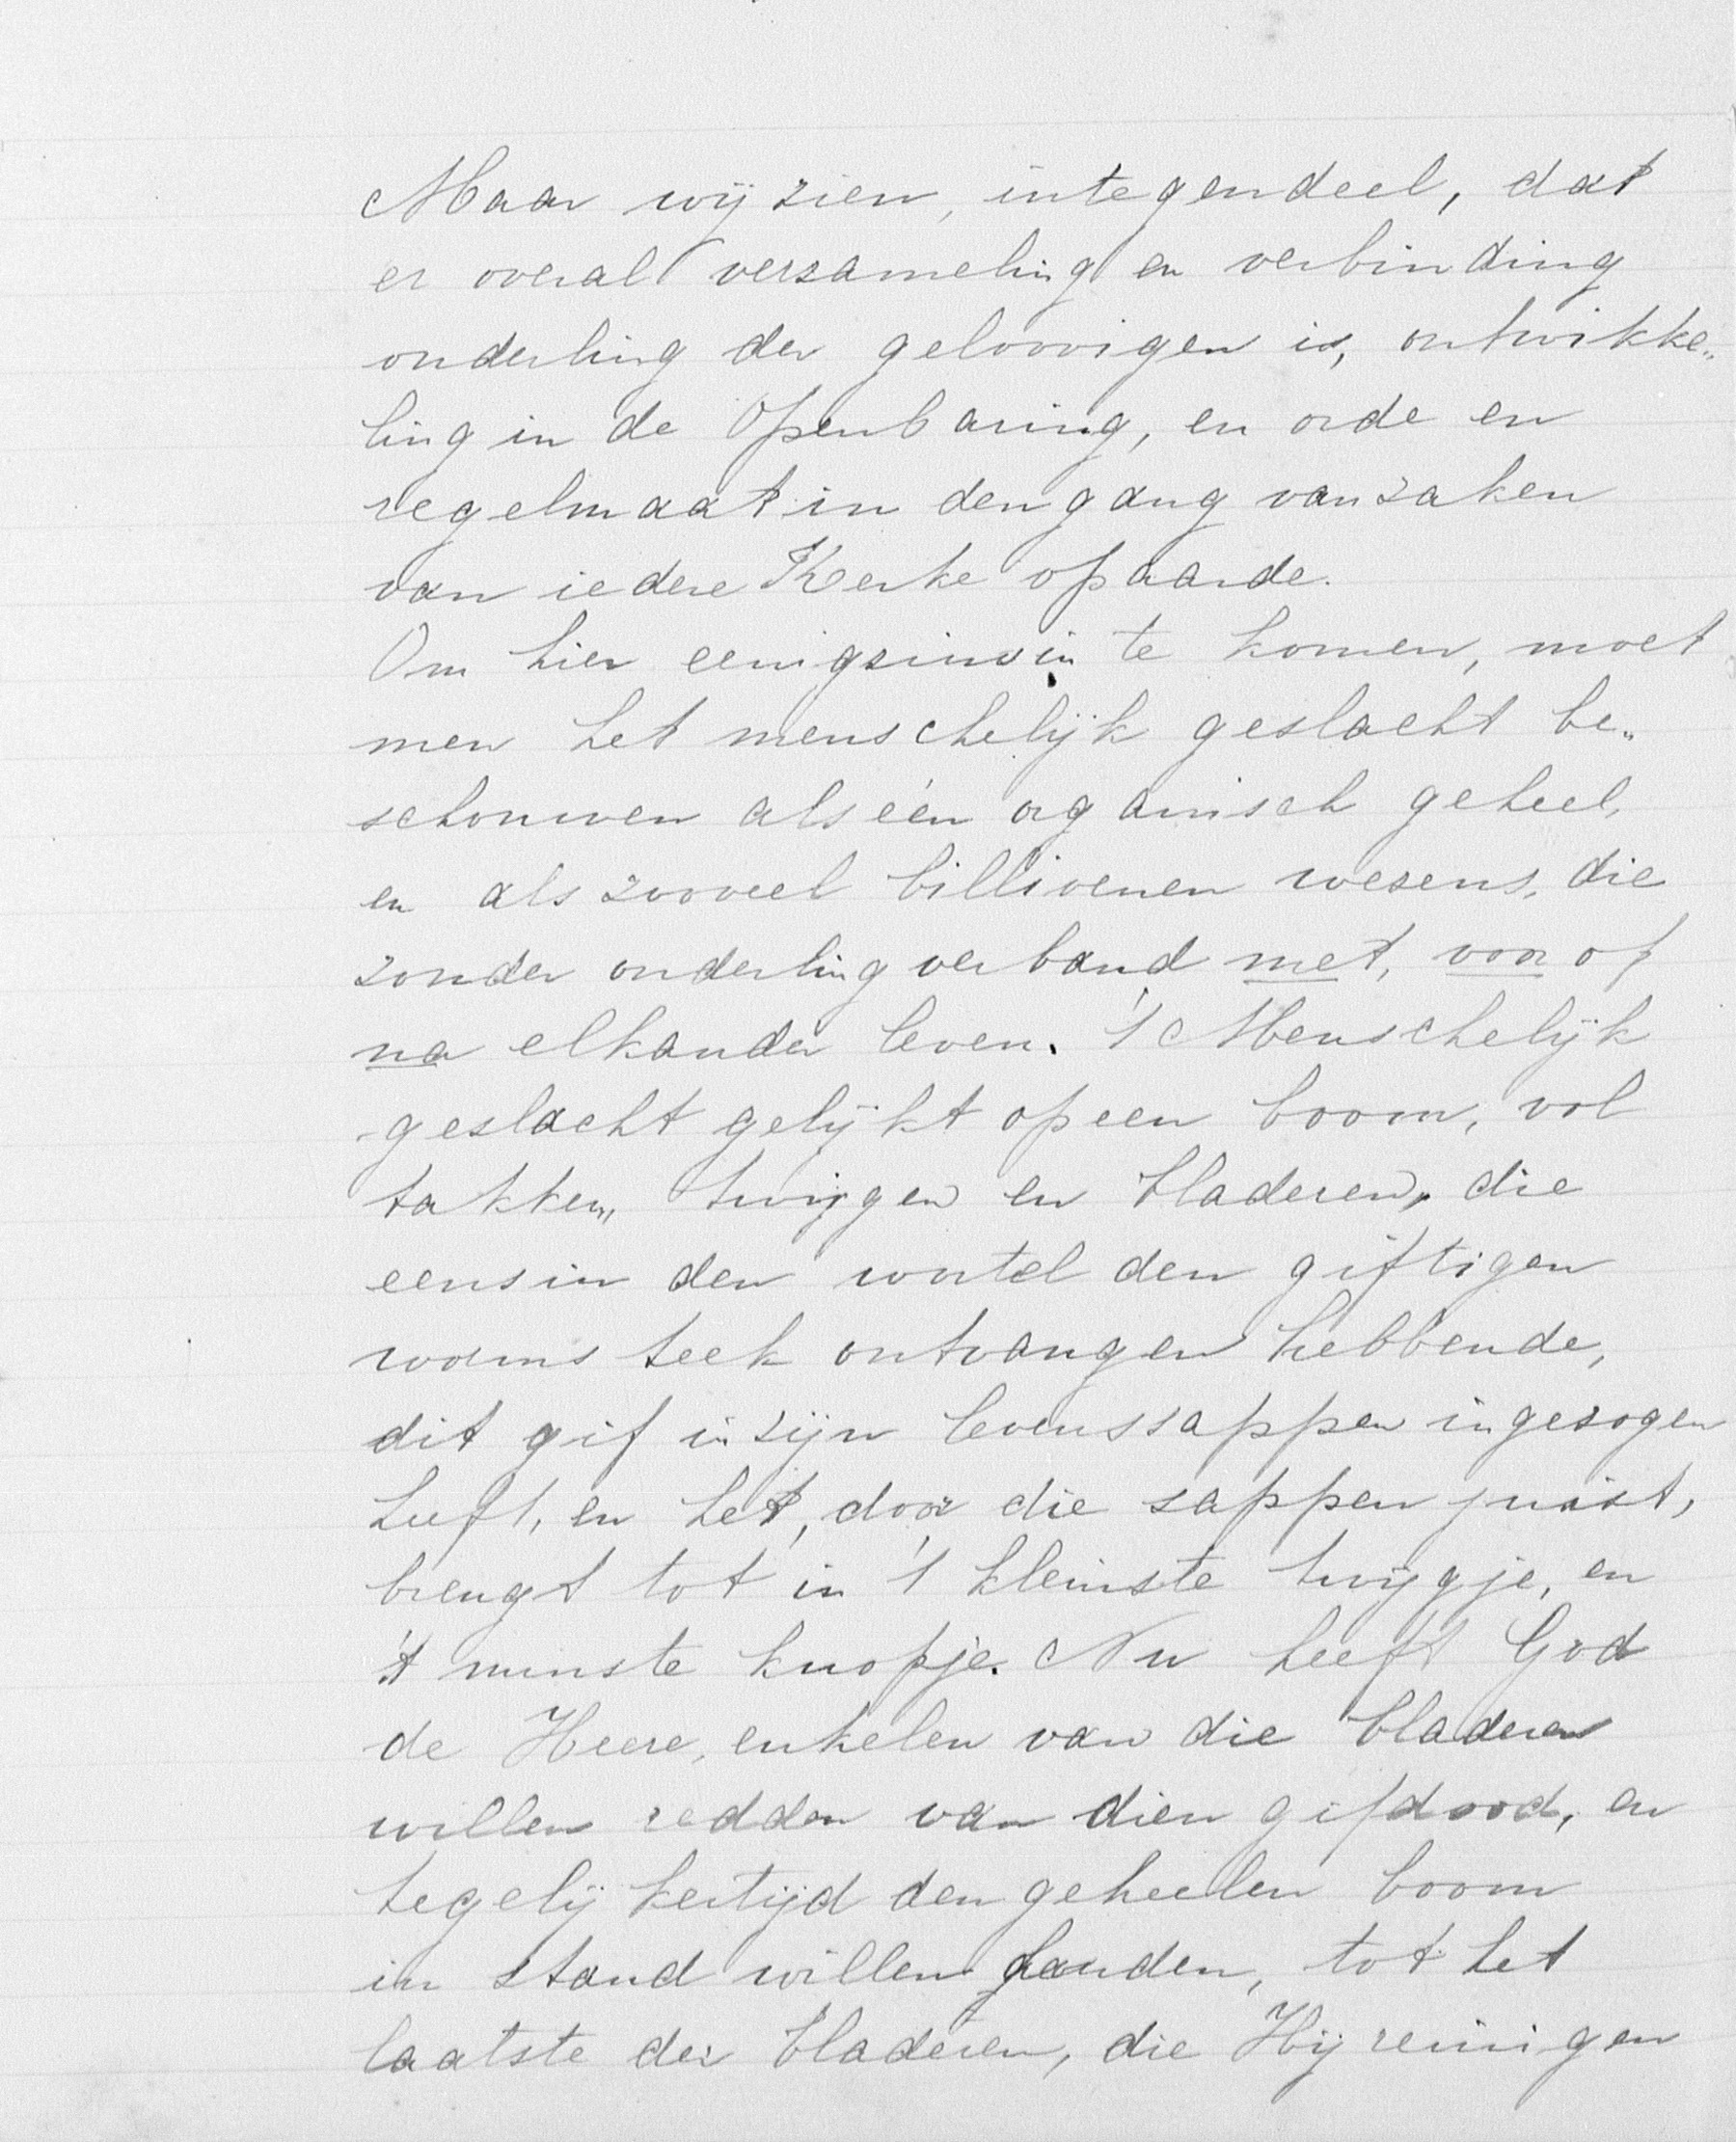 Maar wij zien, integendeel, dat
er overal verzameling en verbinding
onderling der geloovigen is, ontwikke„
ling in de Openbaring, en orde en
regelmaat in den gang van zaken
van iedere Kerke op aarde.
Om hier eenigzins in te komen, moet
men het menschelijk geslacht be„
schouwen als één organisch geheel,
en als zooveel billioenen wezens, die
zonder onderling verband met, voor of
na elkander leven. 't Menschelijk
geslacht gelijkt op een boom, vol
takken, twijgen en bladeren, die
eens in den wortel den giftigen
worms teek ontvangen hebbende,
dit gif in zijn levenssappen ingezogen
heeft, en het, door die sappen juist,
brengt tot in 't kleinste twijgje, en
't minste knopje. Nu heeft God
de Heere, enkelen van die bladeren
willen redden van dien gifdood, en
tegelijkertijd den geheelen boom
in stand willen houden, tot het
laatste der bladeren, die Hij reinigen